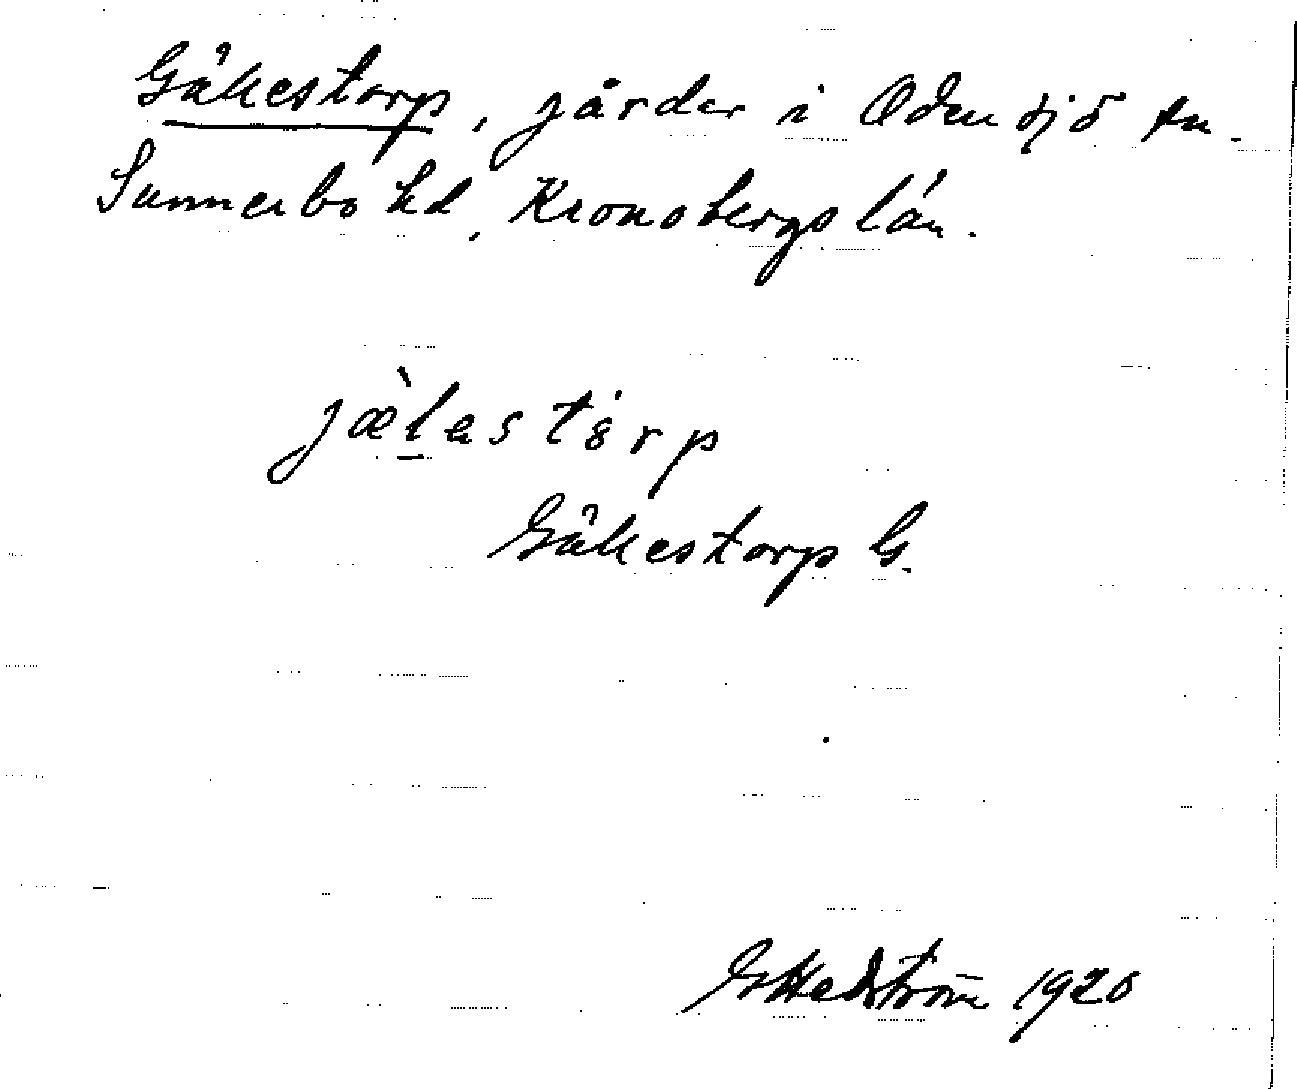 Gäkestorp, gårder i Odensjö sn.
Sunnerbo hd, Kronobergs län.
Gäkestorp G.
G Hedström 1920